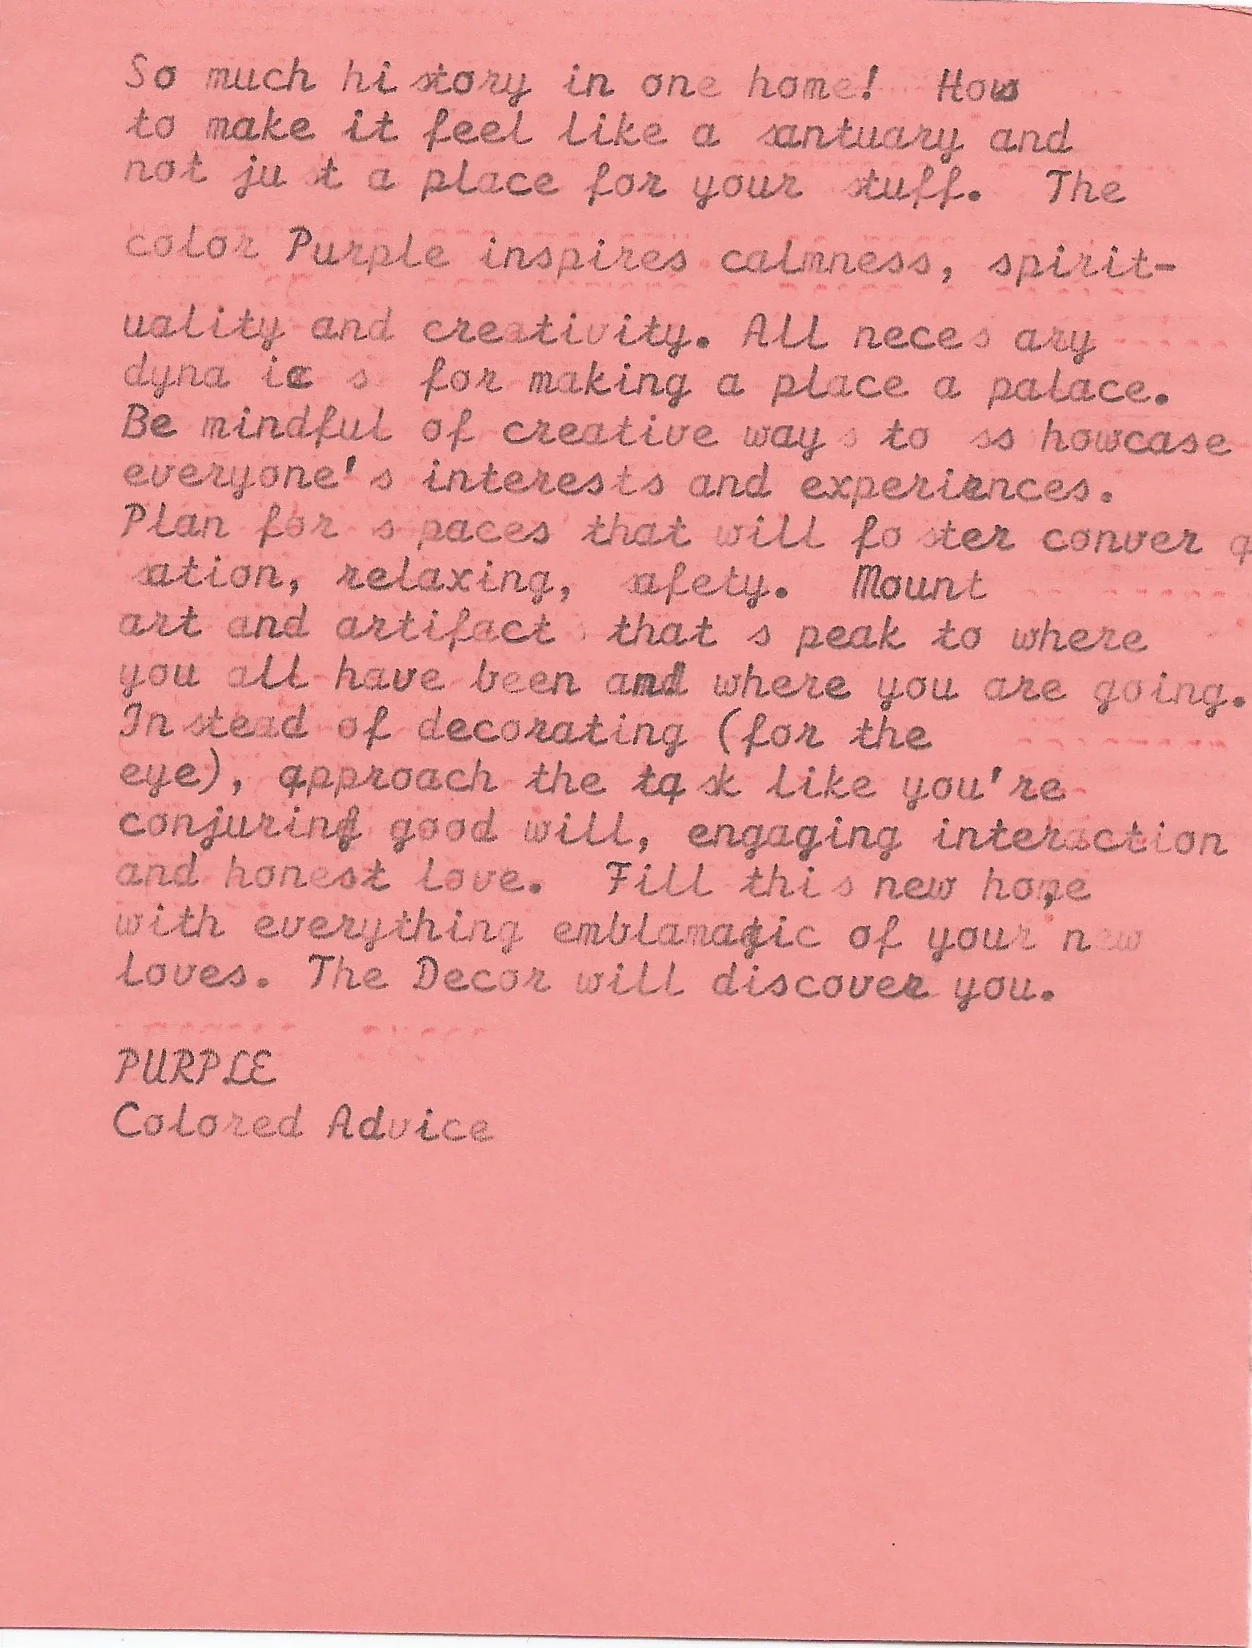 So much hi story in one home!  How
to make it feel like a  santuary and
not ju t a place for your  stuff.  The
color Purple inspires calmness, spirit-
uality and creativity. All neces ary
dyna ic s  for making a place a palace.
Be mindful of creative way s to  ss howcase
everyone's interests and experiences.
Plan for s paces that will fo ster conver
 sation, relaxing,  afety.  Mount
art and artifact s that s peak to where
you all have been and where you are going.
In stead of decorating (for the
eye), approach the ta sk like you're
conjuring good will, engaging interaction
and honest love.  Fill thi s new home
with everything emblamatic of your new
loves. The Decor will discover you.
PURPLE
Colored Advice